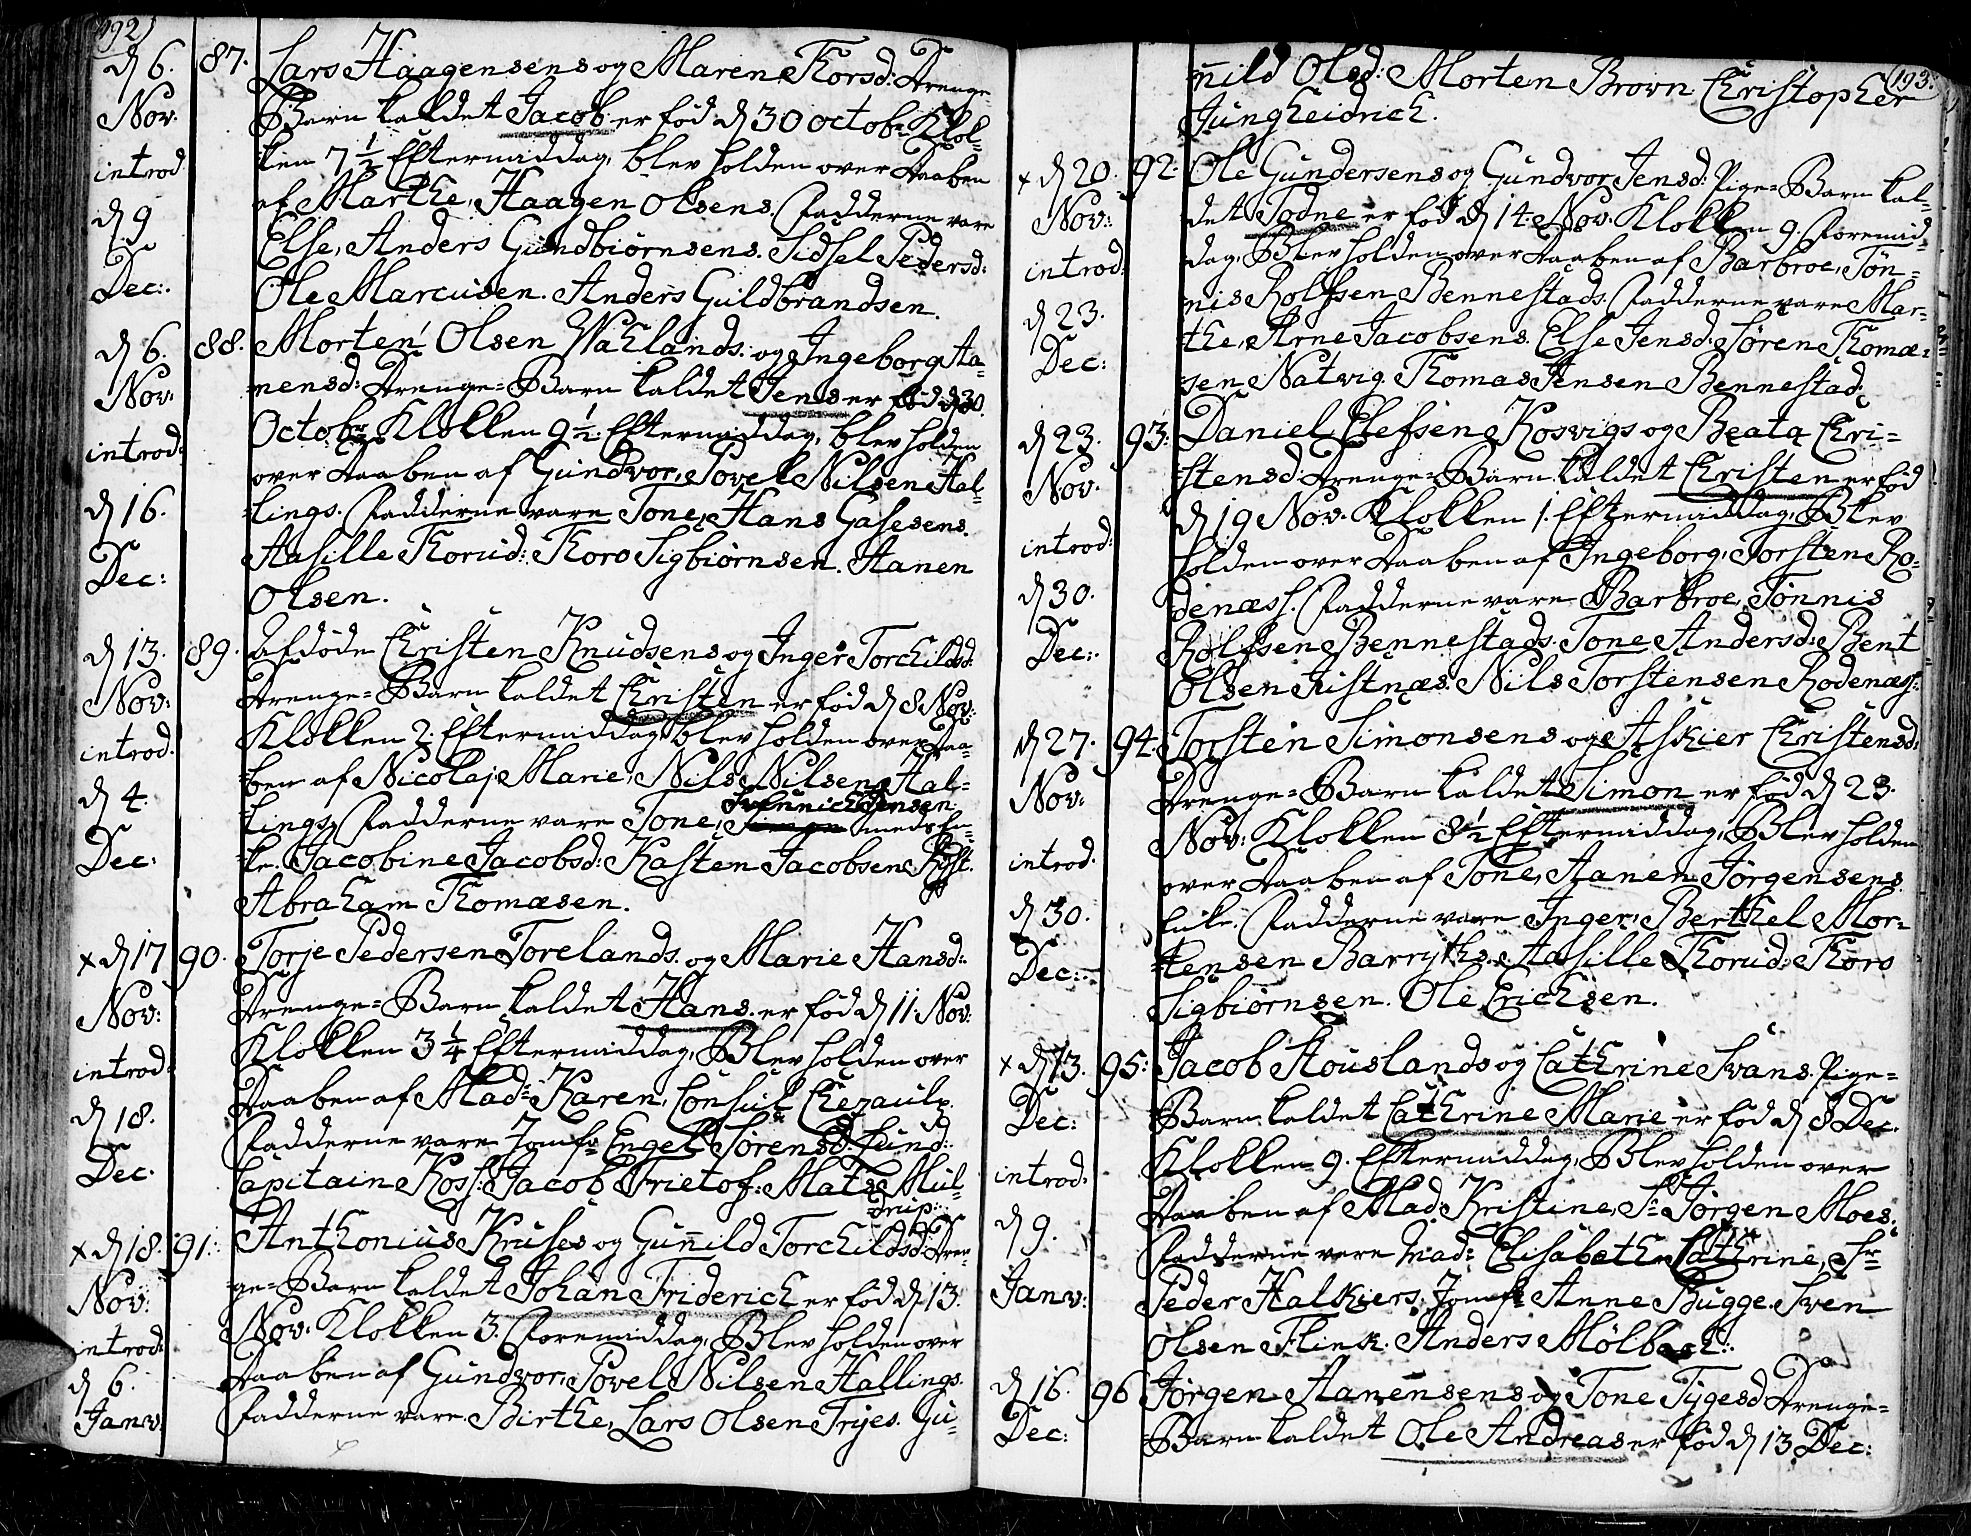 192)
d 6. Nov: introd. d 9 Dec:.
87. Lars Haagensens og Maren Thorsd: Drenge-
Barn kaldet Jacob er fød d 30 octobr Klok-
ken 7 1/2 Eftermiddag, blev holden over Daaben
af Marthe, Haagen Olsens. Fadderne vare
Else, Anders Gundbiørnsens. Sidsel Pedersd:
Ole Marcusen. Anders Guldbrandsen.
d 6. Nov: introd: d 16. Dec:
88. Morten Olsen Wahlands. og Ingeborg Aa-
nensd: Drenge-Barn kaldet Jens er fød d 30.
Octobr Klokken 9 1/2. Eftermiddag, blev holden
over Daaben af Gundvor, Povel Nilsen Hal-
lings. Fadderne vare Tone, Hans Gasesens.
Aasille Thorud: Thoro Sigbiørnsen. Aanen
Olsen.
d 13. Nov: introd. d 4. Dec:
89. Afdøde Christen Knudsens og Inger Torchildsd:
Drenge-Barn kaldet Christen er fød d 8 Nov:
Klokken 2. Eftermiddag, blev holden over Daa-
ben af Nicolaj Marie, Nils Nilsen Hal-
lings, Fadderne vare Tone, Svennich Jensen
Jacobine Jacobsd: Kasten Jacobsen
Abraham Thomæsen.
x d 17 Nov: introd: d 18. Dec.
90. Torje Pedersen Torelands. og Marie Hansd:
Drenge-Barn kaldet Hans. er fød d 11. Nov:
Klokken 3 1/4 Eftermiddag, Blev holden over
Daaben af Mad: Karen, Consul Chezaulx.
Fadderne vare Jomfr Engel Sørensd: Lund:
Capitain Kos: Jacob Frietof: Mats Mul-
drup:
x d 18. Nov: introd: d 6. Janv:
91. Anthonius Kruses og Guñild Torchildsd: Dren-
ge-Barn kaldet Johan Friderich er fød d 13.
Nov. Klokken 3. Formiddag, Blev holden over
Daaben af Gundvor, Povel Nilsen Hallings.
Fadderne vare. Birthe, Lars Olsen Tryes. Gu-
193:
ñild Olsd: Morten Brovn Christopher
Jungheidrich.
x d 20. Nov: introd. d 23. Dec:
92: Ole Gundersens og Gundvor Jensd: Pige-Barn kal-
det Todne er fød d 14 Nov. Klokken 9. Formid-
dag, Blev holden over Daaben af Barbroe, Tøn-
nis Rolfsen Bennestads. Fadderne vare Mar-
the, Arne Jacobsens. Else Jensd: Søren Thomæ-
sen Natvig. Thomas Jensen Bennestad.
d 23. Nov: introd: d 30. Dec:.
93: Daniel Elefsen Kosvigs og Beata Chri-
stensd: Drenge-Barn kaldet Christen er fød
d 19 Nov. Klokken 1. Eftermiddag, Blev
holden over Daaben af Ingeborg, Torsten Ro-
denæs:. Fadderne vare Barbroe, Tønnis
Rolfsen Bennestads. Tone Andersd: Bent
Olsen Kistnæs. Nils Torstensen Rodenæs:.
d 27. Nov: introd. d 30. Dec:
94. Torsten Simonsens og Askier Christensd:
Drenge-Barn kaldet Simon er fød d 23.
Nov: Klokken 8 1/2 Eftermiddag, Blev holden
over Daaben af Tone, Aanen Jørgensens.
Enke. Fadderne vare Inger, Berthel Mor-
tensen Barryths. Aasille Thorud: Thoro
Sigbiørnsen. Ole Erichsen.
x d 13. Dec: introd. d 9. Janv:
95: Jacob Stouslands og Cathrine Svans. Pige-
Barn kaldet Cathrine Marie er fød d 8 Dec.
Klokken 9. Eftermiddag, Blev holden over
Daaben af Mad: Kristine, Sr Jørgen Moes.
Fadderne vare Mad: Elisabeth Cathrine, Sr
Peder Halkiers. Jomfr Anne Bugge. Sven
Olsen Flink. Anders Mølbach:.
d 16. Dec:
96 Jørgen Aanensens og Tone Tygesd: Drenge-
Barn kaldet Ole Andreas er fød d 13 Dec: